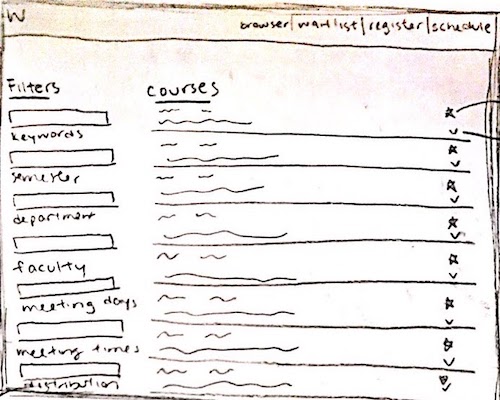 W
browser/waitlist/register/schedule
Filters
courses
keywords
semester
department
faculty
meeting days
meeting times
distribution